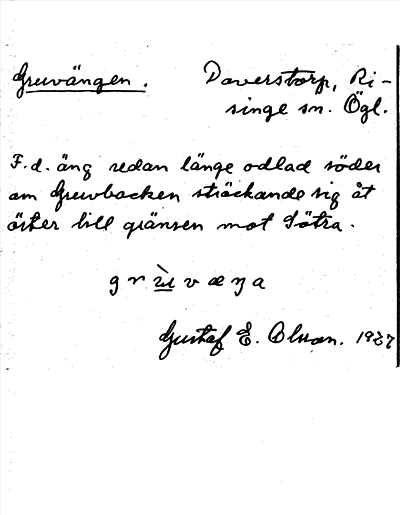 Gruvängen. Daverstorp, Ri-
singe sn. Ögl.
F.d. äng redan länge odlad söder
om Gruvbacken sträckande sig åt
öster till gränsen mot Sötra.
Gustaf E. Olsson. 1927